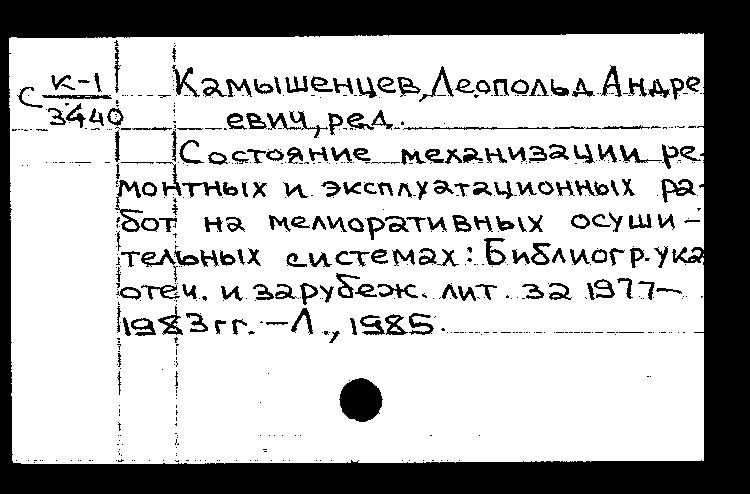 С К-1
3440
Камышенцев, Леопольд Андре
евич, ред.
Состояние механизации ре-
монтных и эксплуатационных ра-
бот на мелиоративных осуши-
тельных системах: Библиогр. ука
отеч. и зарубеж. лит. за 1977-
1983 гг. - Л., 1985.